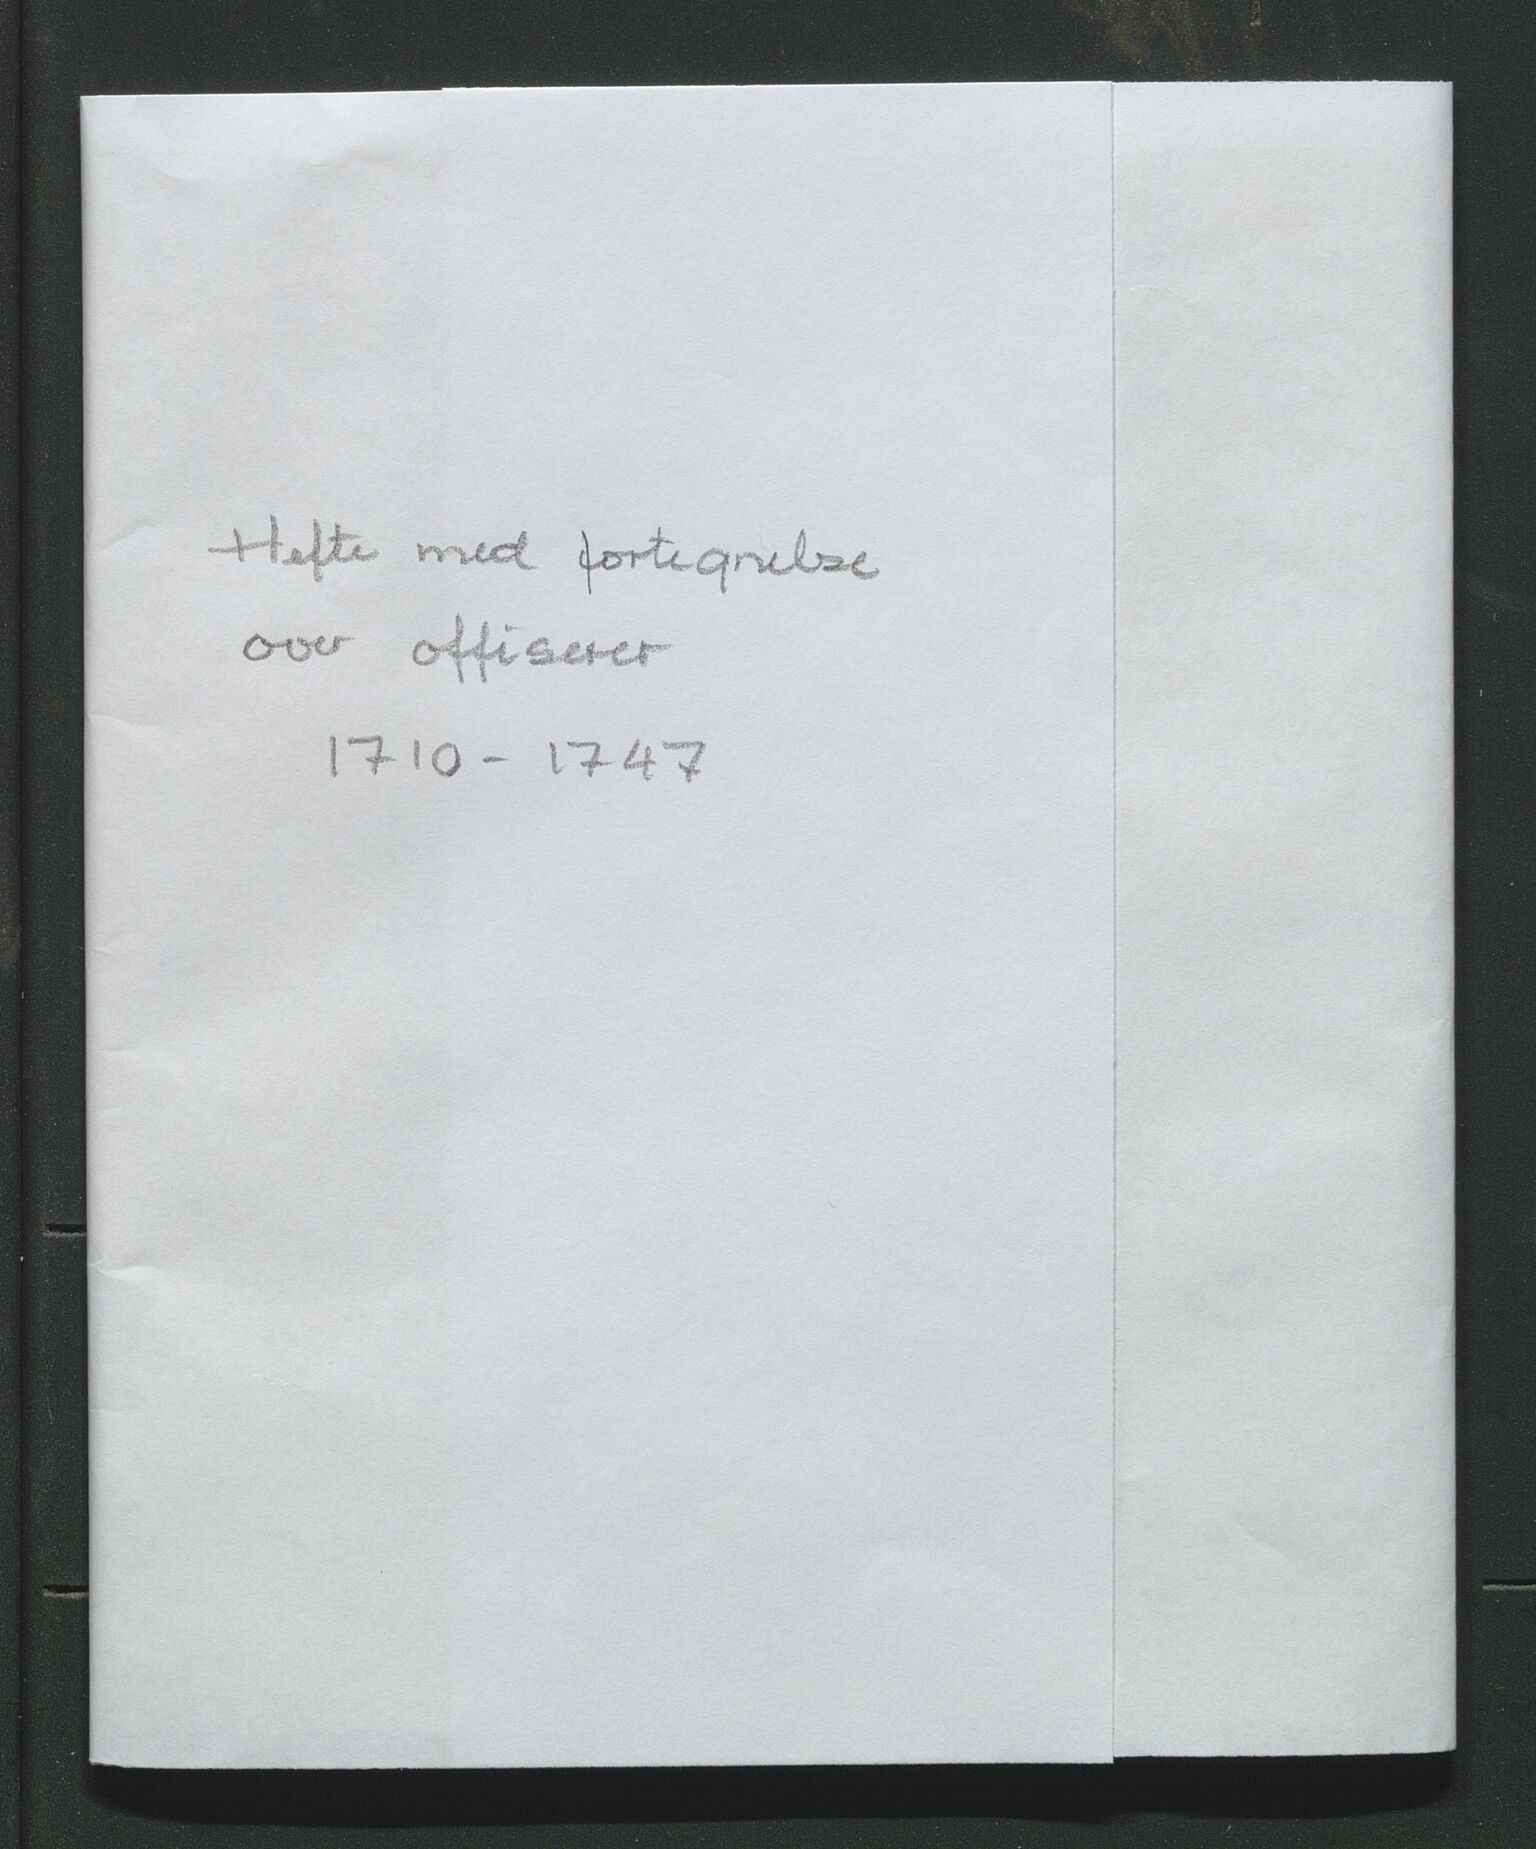 Hefte med fortegnelse
over offiserer
1710 - 1747